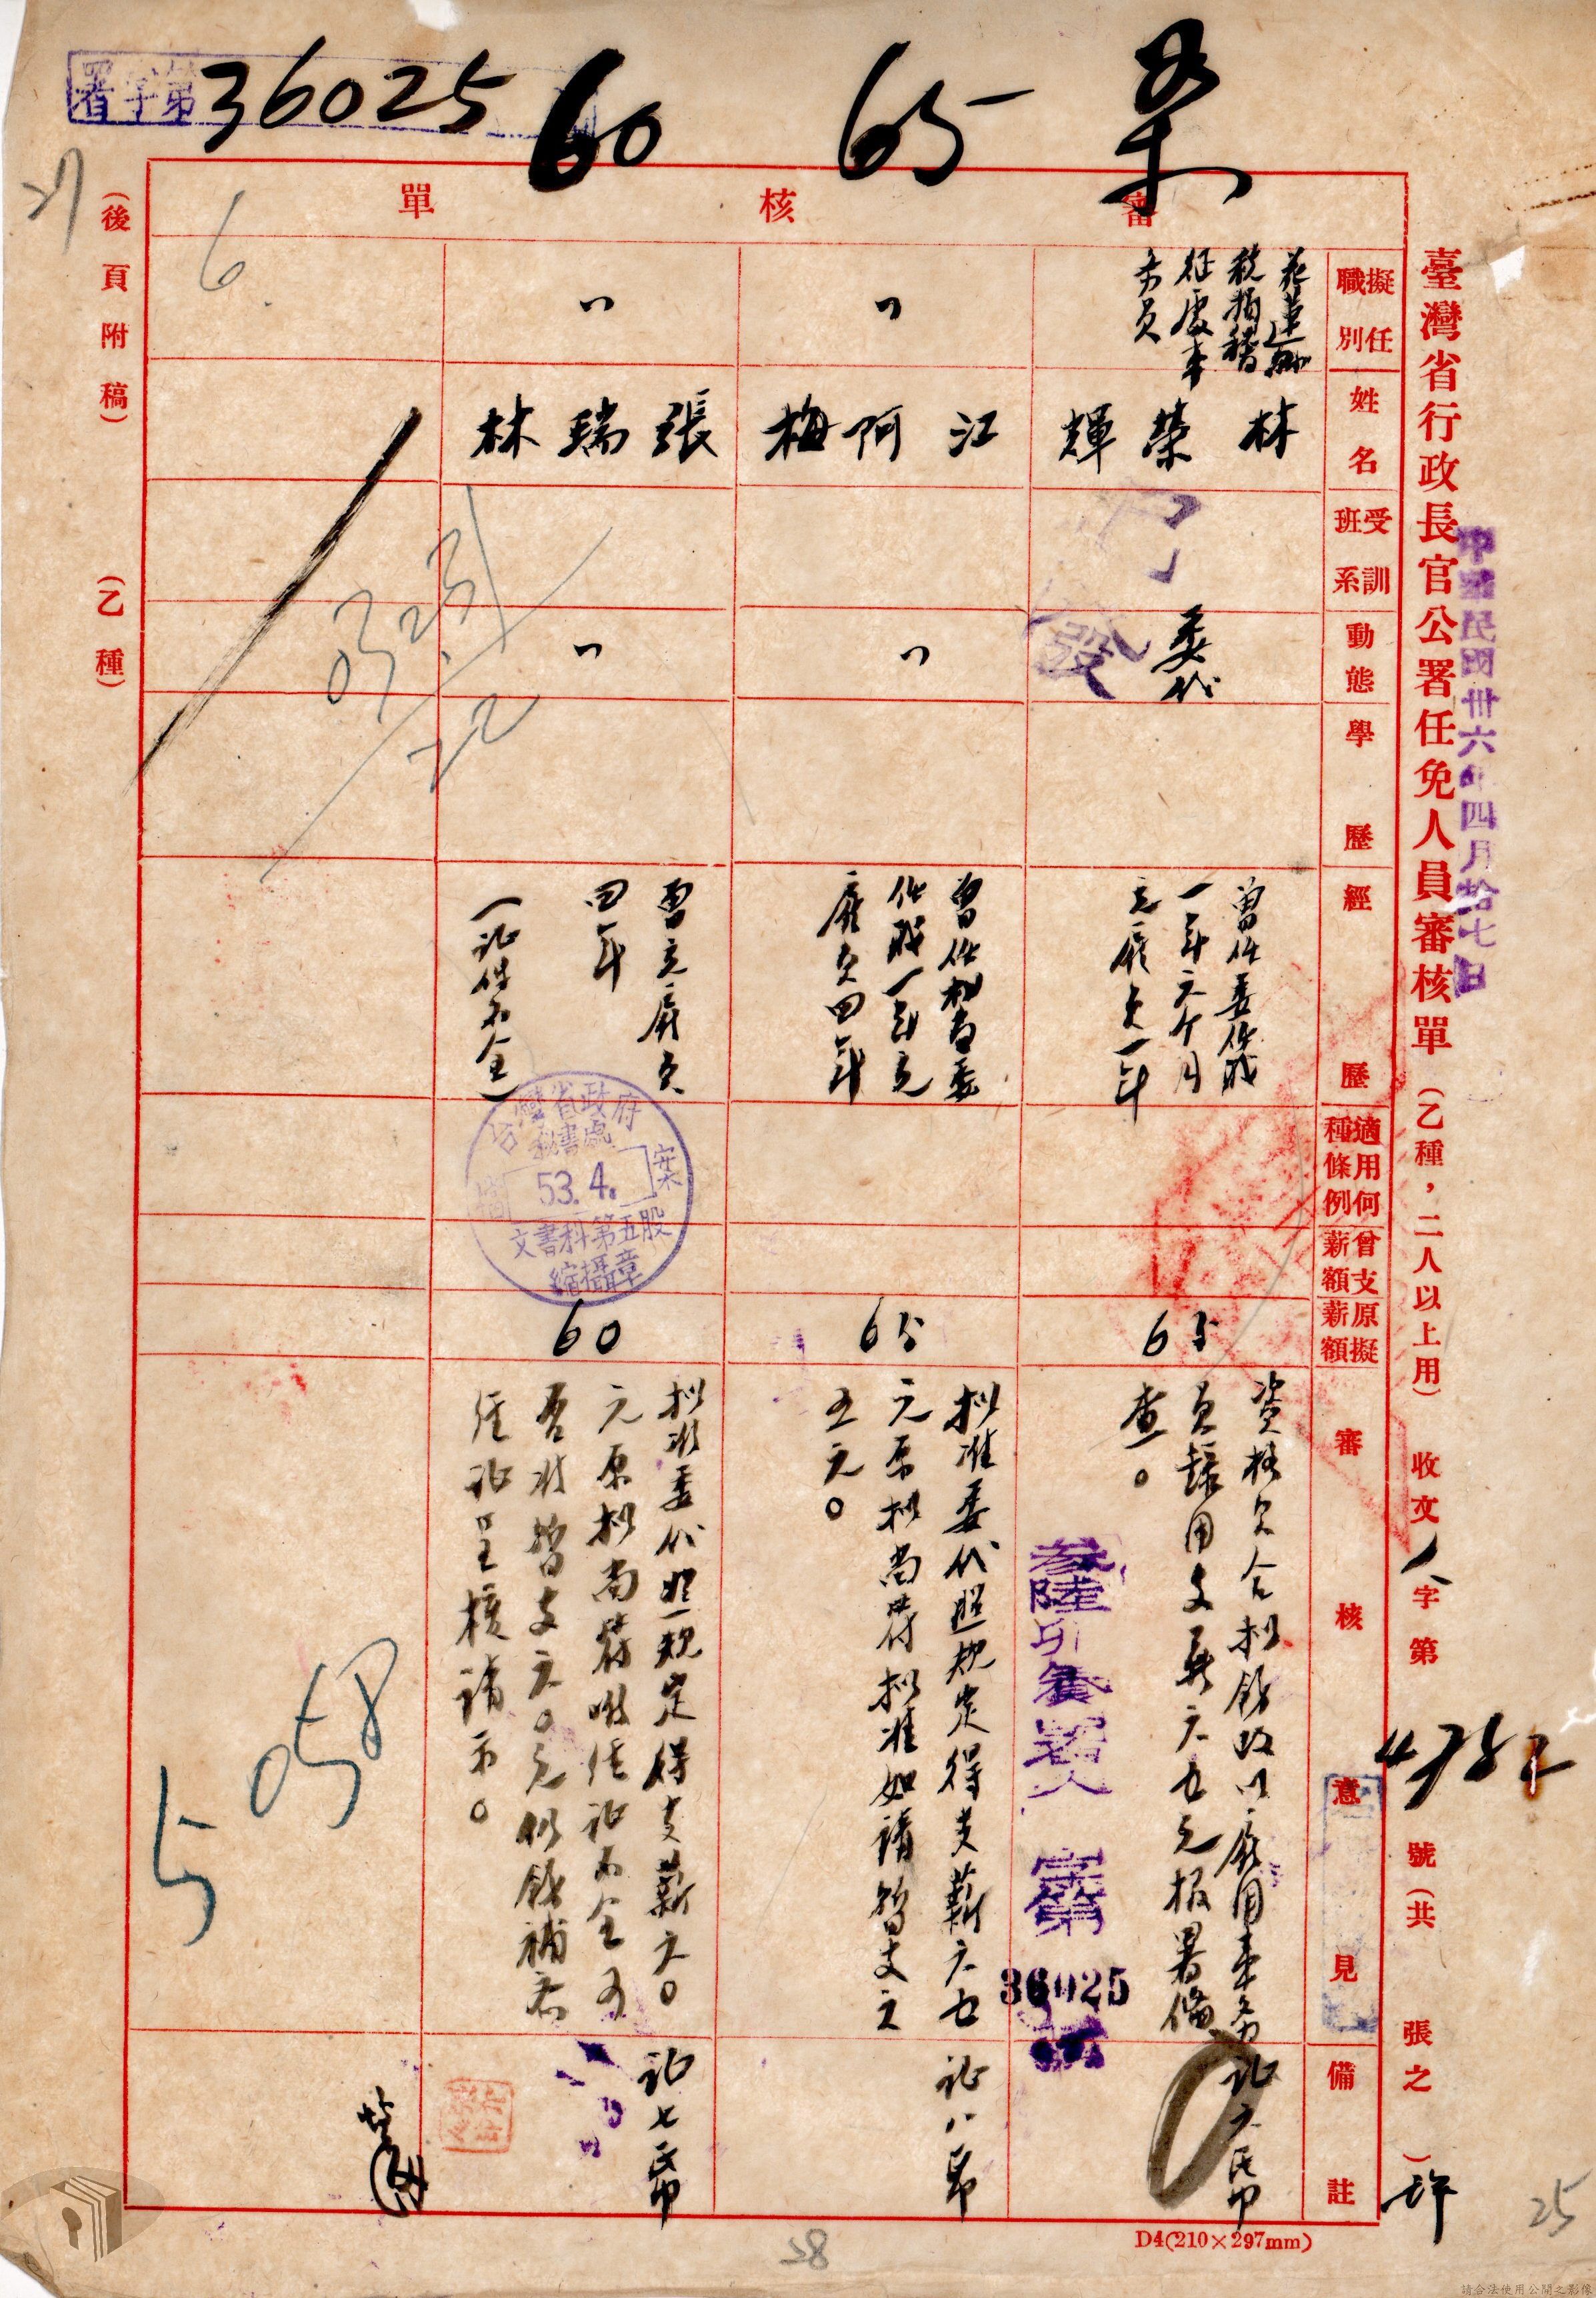 臺灣省行政長官公署任免人員審核單（乙種，二人以上用）收文人字第4752號（共 張之 ）
中華民國卅六年四月拾七日
許
署字第36025
60
65
審核單
擬任職別
姓名
受訓班系
動態
學歷
經歷
適用何種條例
曾支薪額
原擬薪額
審核意見
備註
花蓮縣
稅捐稽
征處事
務員
林榮輝
委代
曾任委任職
一年六个月
充雇員一年
65
資格欠合擬飭改以雇用事務
員錄用支薪六五元報署備
查。
證六民印
〃
江阿梅
〃
曾任相當委
任職一年充
雇員四年
65
擬准委代照規定得支薪六五
元原擬尚符擬准如請暫支六
五元。
證八
〃
張瑞林
〃
曾充雇員
四年
（證件不全）
60
擬准委代照規定得支薪六〇
元原擬尚符唯經證不全可
否准暫支六〇元仍飭補齊
經證呈核請示。
證七
發
叁陸
署人
字第
36025
號
台灣省政府
秘書處
檔案
53.4.
文書科第五股
縮攝章
（後頁附稿）
（乙種）
27
6
0323/22
058
5
25
28
D4(210×297mm)
請合法使用公開之影像